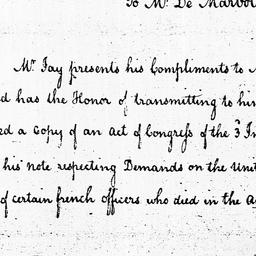 To Mr. De Marbois
Mr. Jay presents his Compliments to
d has the Honor of transmitting to him
ed a Copy of an Act of Congress of the 3d In
his note respecting Demands on the Unit
of certain french officers who died in the A